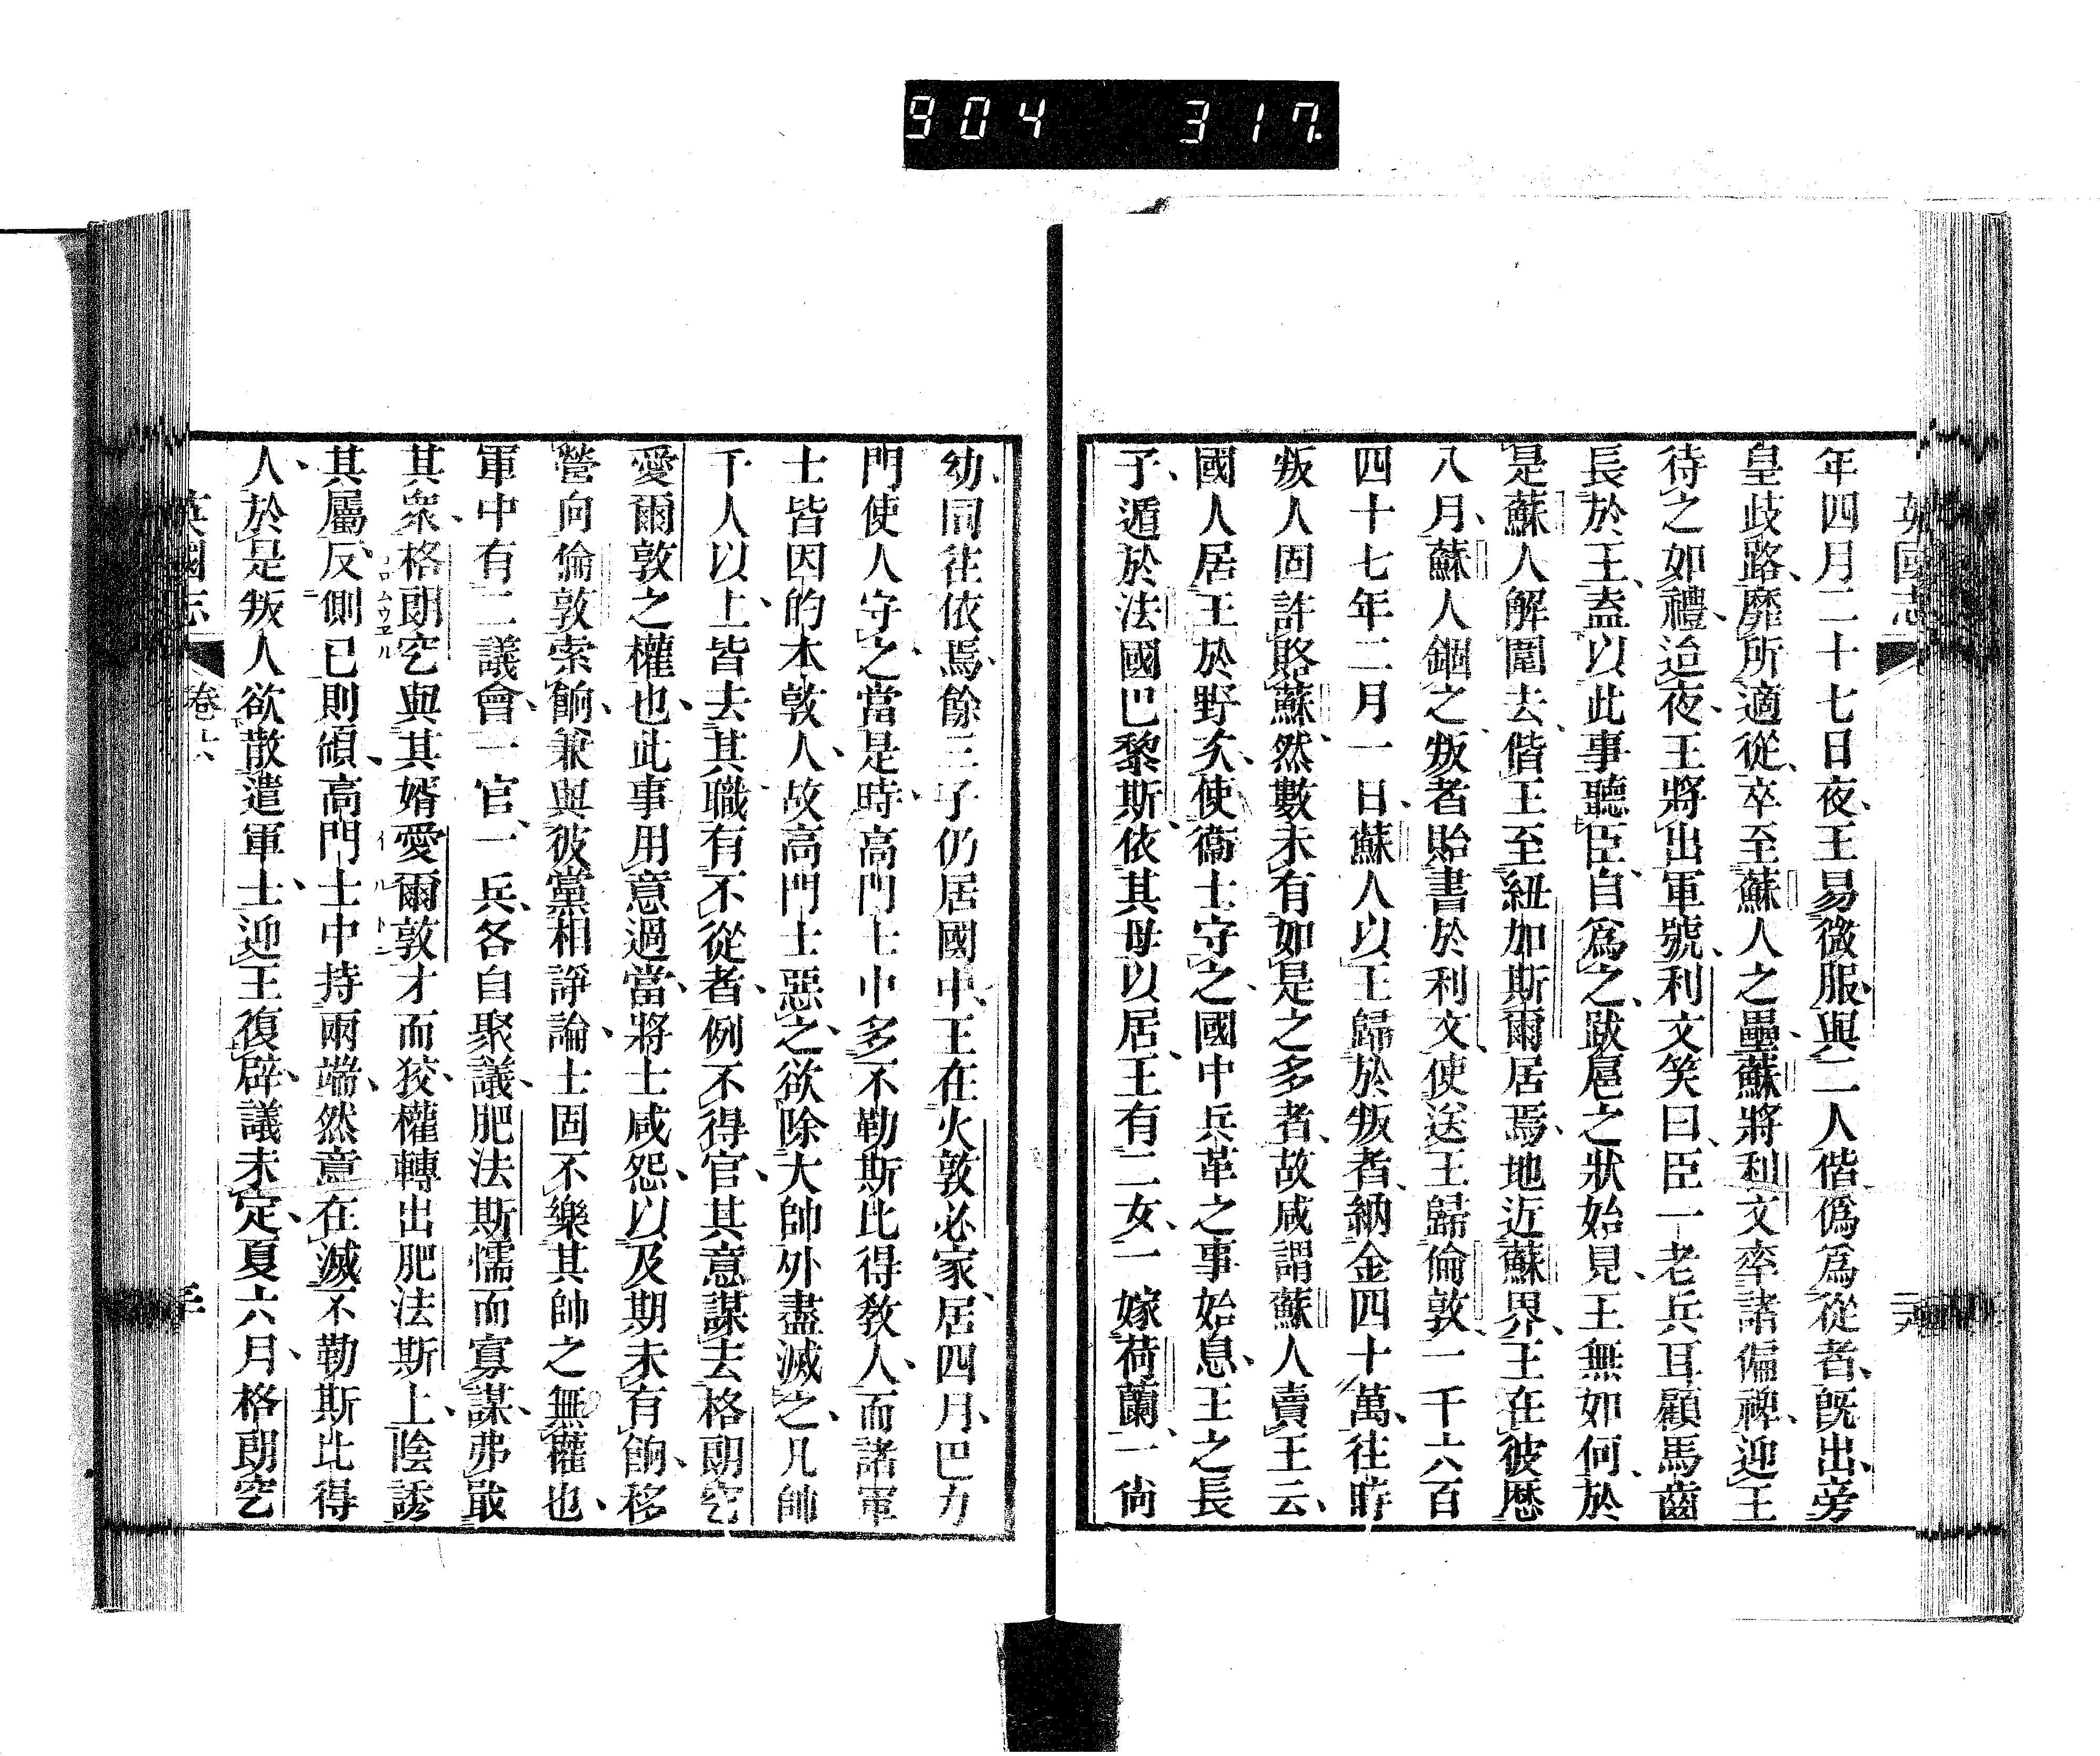 904 317
英國志
年四月二十七日夜、王易微服、與二人偕、僞爲從者、既出、旁
皇歧路、靡所適從、卒至蘇人之壘、蘇將利文率諸偏裨、迎王
待之如禮、迨夜、王將出軍號、利文笑曰、臣一老兵耳、顧馬齒
長於王、盍以此事聽臣、自爲之、跋扈之狀始見、王無如何、於
是蘇人解圍去、偕王至紐加斯爾居焉、地近蘇界、王在彼歷
八月、蘇人錮之、叛者貽書於利文、使送王歸倫敦、一千六百
四十七年二月一日、蘇人以王歸於叛者、納金四十萬、往時
叛人固許賂蘇、然數未有如是之多者、故咸謂蘇人賣王云、
國人居王於野次、使衞士守之、國中兵革之事始息、王之長
子、遁於法國巴黎斯、依其母以居、王有二女、一嫁荷蘭、一尙
幼、同往依焉、餘三子仍居國中、王在火敦必家、居四月、巴力
門使人守之、當是時、高門士中多不勒斯比得敎人、而諸軍
士皆因的本敦人、故高門士惡之、欲除大帥外盡滅之、凡帥
千人以上、皆去其職、有不從者、例不得官、其意謀去格朗空
愛爾敦之權也、此事用意過當、將士咸怨、以及期未有餉、移
營向倫敦索餉、兼與彼黨相諍論、士固不樂其帥之無權也、
軍中有二議會、一官、一兵、各自聚議、肥法斯懦而寡謀、弗戢
其衆、格朗空與其婿愛爾敦才而狡、權轉出肥法斯上、陰誘
コロムウヱル
イルトン
其屬反側、己則傾高門士中持兩端、然意在滅不勒斯比得
人、於是叛人人欲散遣軍士、迎王復辟、議未定、夏六月、格朗空
英國志
卷六